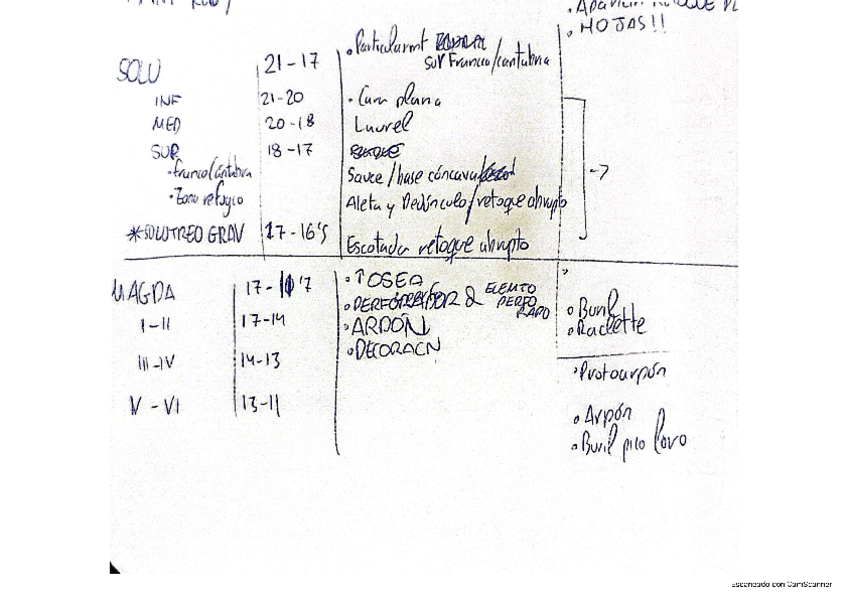 HOJAS!!
SOLU 21-17 • Particularmt Sur Francia/cantabria
INF 21-20 • Cara plana
MED 20-18 Laurel
SUP 18-17
• Franco/cantabria Sauce/base cóncava
• Zona refugio Aleta y Pedúnculo/retoque abrupto
* SOLUTREO GRAV 17-16'5 Escotada retoque abrupto
MAGDA 17-10'7 • ↑ OSEA
• PERFORADOR & ELEMTO PERFORADO
I-II 17-14 • ARPÓN
• DECORACN
III-IV 14-13
V-VI 13-11
• Buril
• Raclette
• Protoarpón
• Arpón
• Buril pico loro
Escaneado con CamScanner